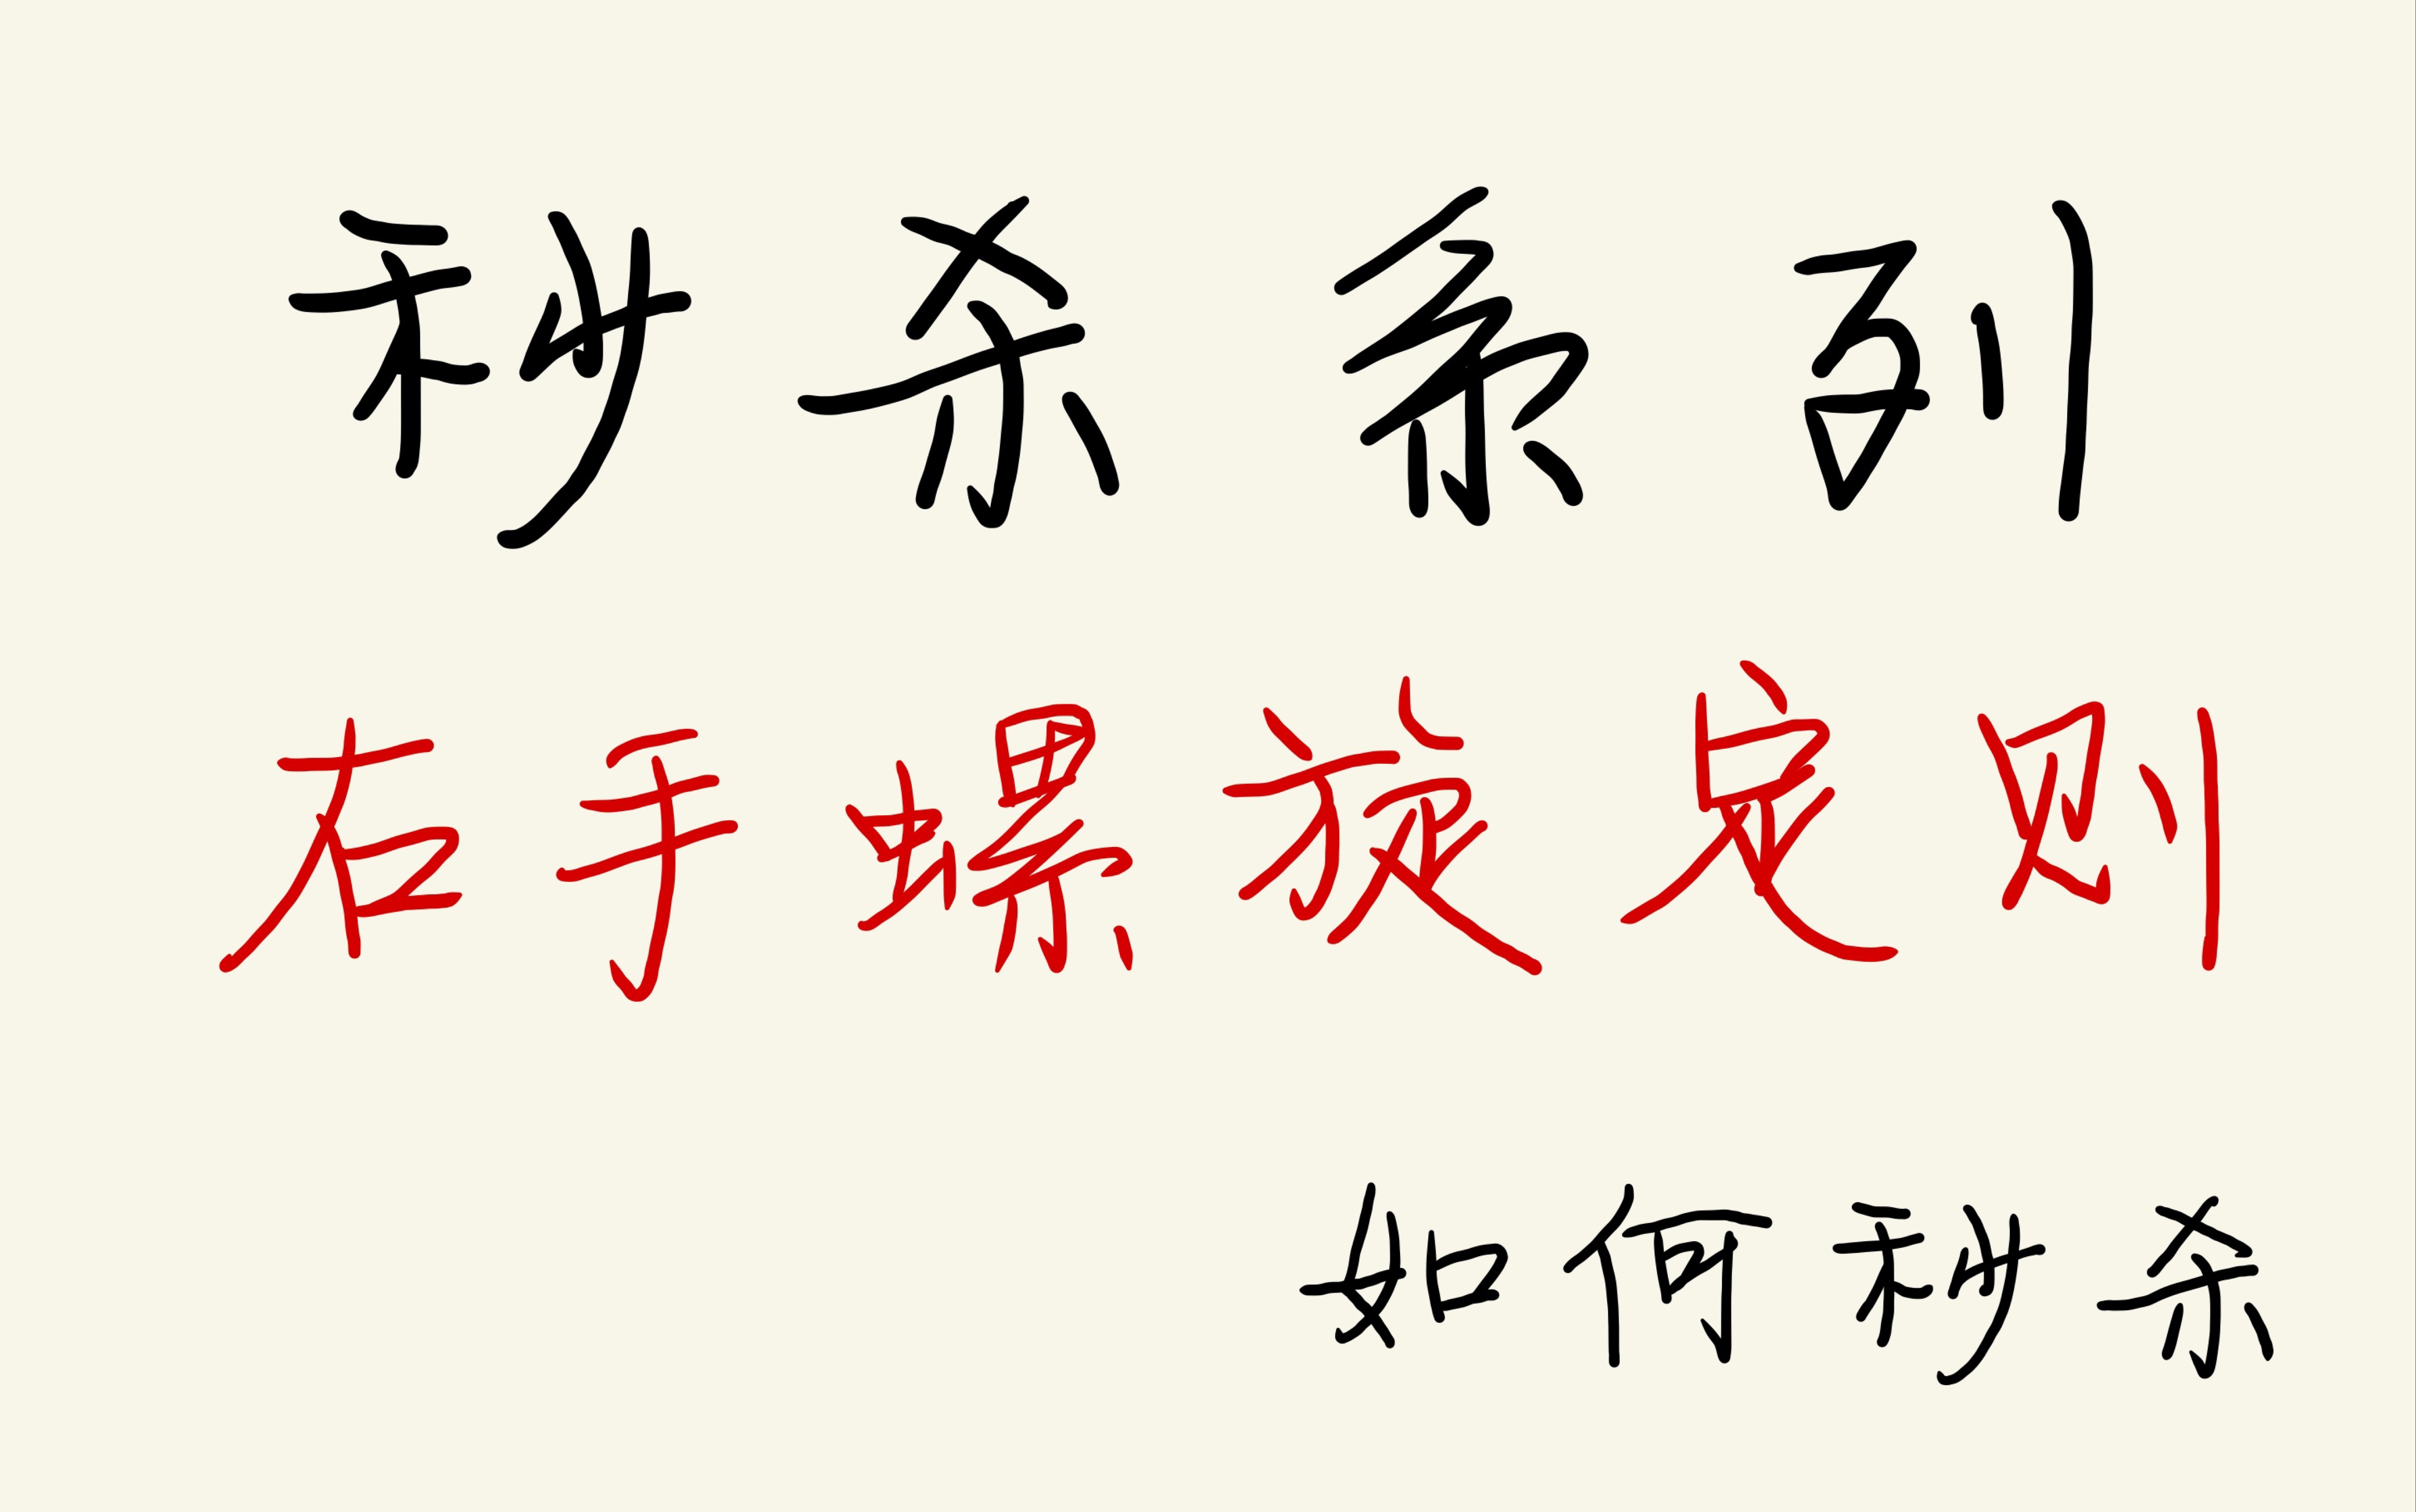 秒杀系列
右手螺旋定则
如何秒杀